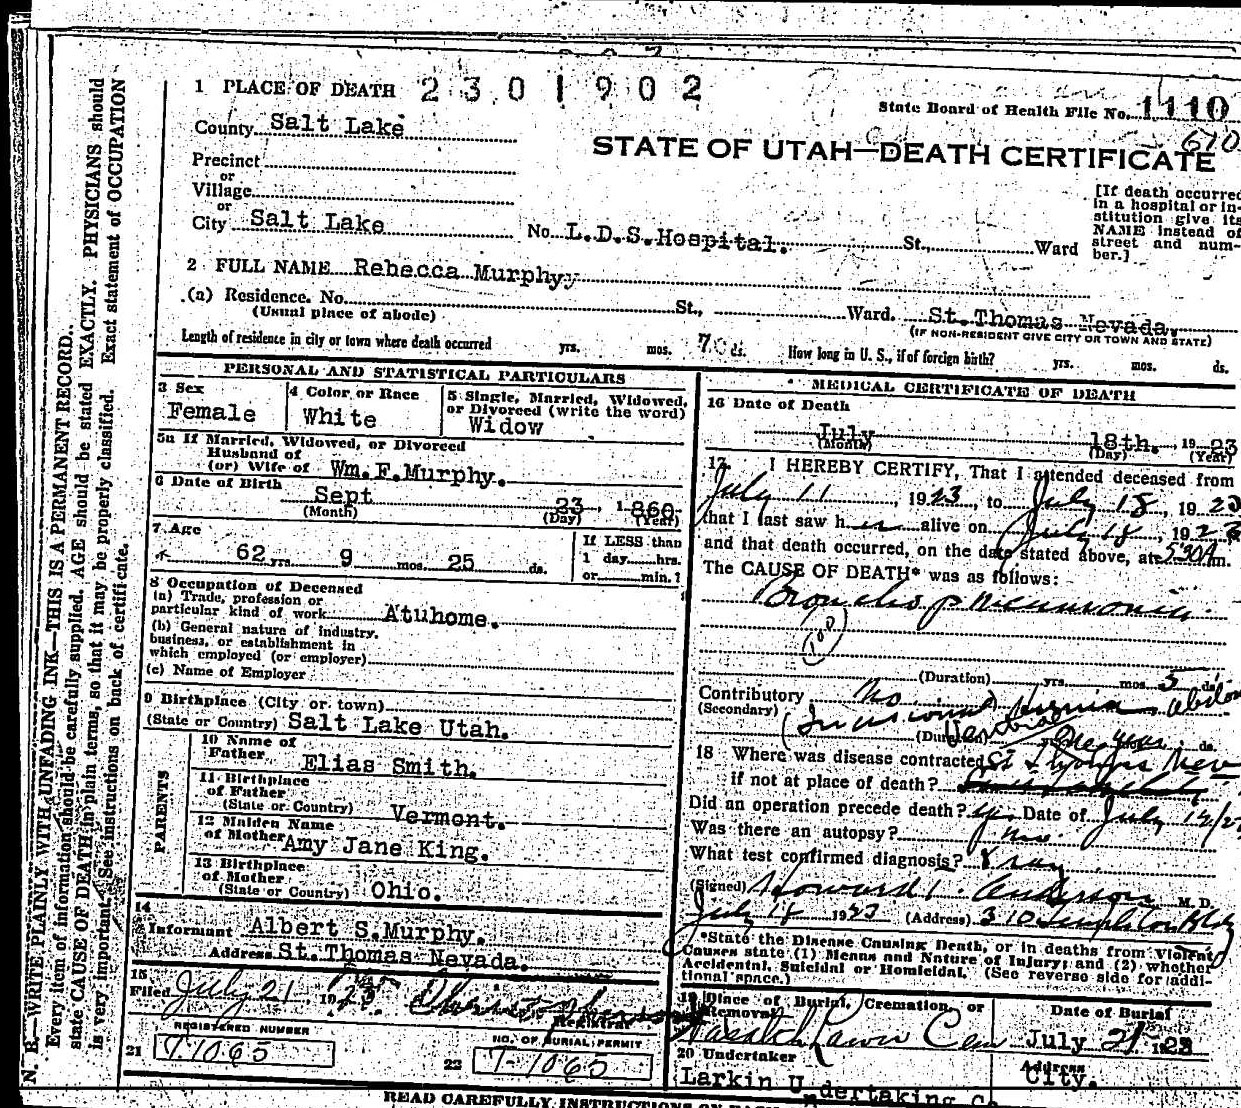 1 PLACE OF DEATH 2301902
State Board of Health File No. 1110
610
County Salt Lake
STATE OF UTAH—DEATH CERTIFICATE
Precinct
or
Village
or
City Salt Lake No. L.D.S.Hospital. St., Ward
[If death occurred
in a hospital or in-
stitution give its
NAME instead of
street and num-
ber.]
2 FULL NAME Rebecca Murphyy
(a) Residence. No. St., Ward. St.Thomas Nevada.
(Usual place of abode) (IF NON-RESIDENT GIVE CITY OR TOWN AND STATE)
Length of residence in city or town where death occurred yrs. mos. 7 ds. How long in U. S., if of foreign birth? yrs. mos. ds.
PERSONAL AND STATISTICAL PARTICULARS
3 Sex
Female
4 Color or Race
White
5 Single, Married, Widowed,
or Divorced (write the word)
Widow
5a If Married, Widowed, or Divorced
Husband of
(or) Wife of Wm.F.Murphy.
6 Date of Birth Sept 23, 1860.
(Month) (Day) (Year)
7 Age
62 yrs. 9 mos. 25 ds.
If LESS than
1 day hrs.
or min.?
8 Occupation of Deceased
(a) Trade, profession or
particular kind of work Atuhome.
(b) General nature of industry,
business, or establishment in
which employed (or employer)
(c) Name of Employer
9 Birthplace (City or town)
(State or Country) Salt Lake Utah.
PARENTS
10 Name of
Father Elias Smith.
11 Birthplace
of Father
(State or Country) Vermont.
12 Maiden Name
of Mother Amy Jane King.
13 Birthplace
of Mother
(State or Country) Ohio.
14
Informant Albert S.Murphy.
Address St.Thomas Nevada.
15
Filed July 21 1923
Registrar
REGISTERED NUMBER
21 T1065
NO. OF BURIAL PERMIT
22 T-1065
MEDICAL CERTIFICATE OF DEATH
16 Date of Death
July 18th. 1923
(Month) (Day) (Year)
17. I HEREBY CERTIFY, That I attended deceased from
July 11, 1923, to July 18, 1923
that I last saw her alive on July 18, 1923
and that death occurred, on the date stated above, at 530A m.
The CAUSE OF DEATH* was as follows:
Broncho pneumonia
(100)
(Duration) yrs. mos. 5 ds.
Contributory No
(Secondary) Hernia
(Duration) ds.
18 Where was disease contracted St Thomas Nev
if not at place of death?
Did an operation precede death? yes Date of July 12/23
Was there an autopsy? no
What test confirmed diagnosis? X ray
(Signed) Howard Anderson M. D.
July 18 1923 (Address) 310 Templeton Bldg
*State the Disease Causing Death, or in deaths from Violent
Causes state (1) Means and Nature of Injury; and (2) whether
Accidental, Suicidal or Homicidal. (See reverse side for addi-
tional space.)
19 Place of Burial, Cremation, or
Removal
Wasatch Lawn Cem
Date of Burial
July 21 1923
20 Undertaker
Larkin Undertaking Co
Address
City.
READ CAREFULLY INSTRUCTIONS ON
N. B.—WRITE PLAINLY WITH UNFADING INK—THIS IS A PERMANENT RECORD.
Every item of information should be carefully supplied. AGE should be stated EXACTLY. PHYSICIANS should
state CAUSE OF DEATH in plain terms, so that it may be properly classified. Exact statement of OCCUPATION
is very important. See instructions on back of certificate.